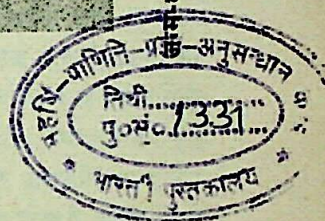 महर्षि-पाणिनि-प्रज्ञा-अनुसन्धान
तिथी............
पु०सं०1331........
भारती पुस्तकालय